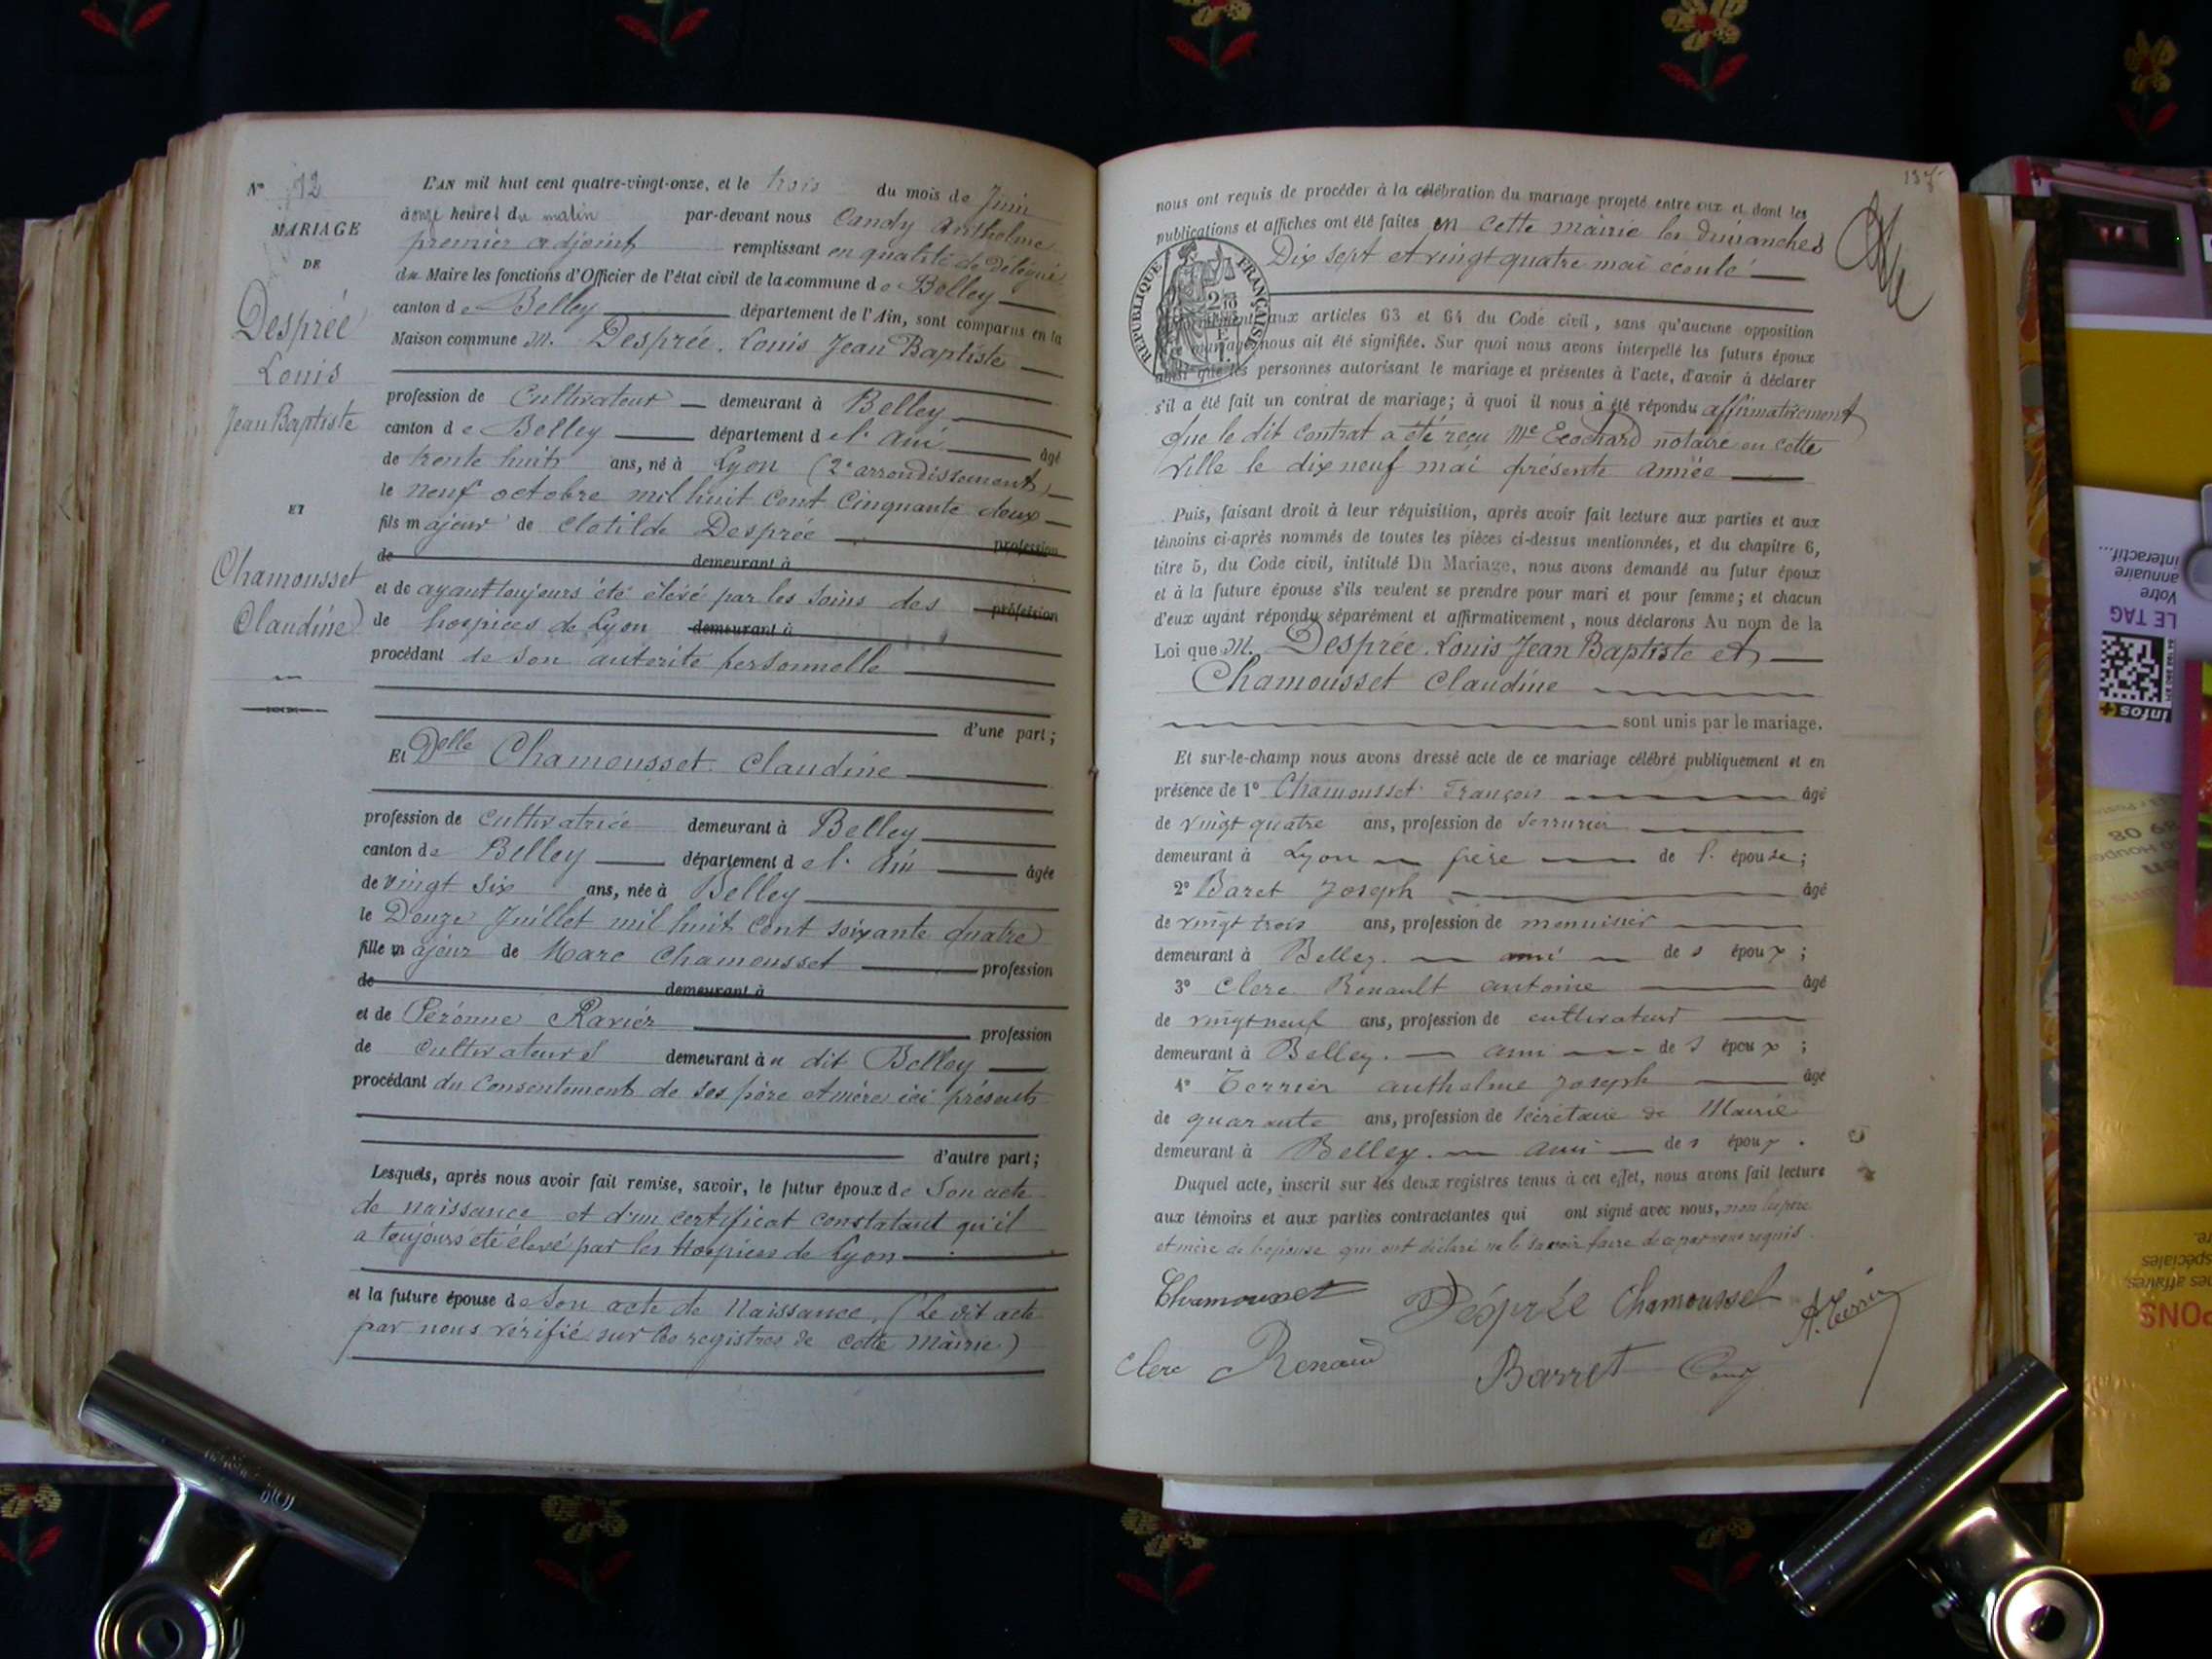 N° 12
MARIAGE
DE
Desprée
Louis
Jean Baptiste
ET
Chamousset
Claudine
L'AN mil huit cent quatre-vingt-onze, et le trois du mois de Juin
à onze heures du matin par-devant nous Candy Anthelme
premier adjoint remplissant en qualité de Délégué
du Maire les fonctions d'Officier de l'état civil de la commune de Belley
canton de Belley département de l'Ain, sont comparus en la
Maison commune M. Desprée. Louis Jean Baptiste
profession de Cultivateur demeurant à Belley
canton de Belley département de l'Ain âgé
de trente huit ans, né à Lyon (2e arrondissement)
le neuf octobre mil huit cent cinquante deux
fils majeur de Clotilde Desprée profession
de demeurant à
et de ayant toujours été élevé par les soins des profession
de hospices de Lyon demeurant à
procédant de son autorité personnelle
d'une part;
Et Delle Chamousset Claudine
profession de cultivatrice demeurant à Belley
canton de Belley département de l'Ain âgée
de vingt six ans, née à Belley
le Douze Juillet mil huit cent soixante quatre
fille majeur de Marc Chamousset profession
de demeurant à
et de Péronne Ravier profession
de cultivateurs demeurant à u dit Belley
procédant du consentement de ses père et mère ici présents
d'autre part;
Lesquels, après nous avoir fait remise, savoir, le futur époux de son acte
de naissance et d'un certificat constatant qu'il
a toujours été élevé par les Hospices de Lyon
et la future épouse de son acte de Naissance. (Le dit acte
par nous vérifié sur les registres de cette Mairie)
137
nous ont requis de procéder à la célébration du mariage projeté entre eux et dont les
publications et affiches ont été faites en cette mairie les dimanches
Dix sept et vingt quatre mai écoulé
RÉPUBLIQUE FRANÇAISE
aux articles 63 et 64 du Code civil, sans qu'aucune opposition
mariage nous ait été signifiée. Sur quoi nous avons interpellé les futurs époux
ainsi que les personnes autorisant le mariage et présentes à l'acte, d'avoir à déclarer
s'il a été fait un contrat de mariage; à quoi il nous a été répondu affirmativement
que le dit contrat a été reçu Me Ecochard notaire en cette
Ville le dix neuf mai présente année
Puis, faisant droit à leur réquisition, après avoir fait lecture aux parties et aux
témoins ci-après nommés de toutes les pièces ci-dessus mentionnées, et du chapitre 6,
titre 5, du Code civil, intitulé Du Mariage, nous avons demandé au futur époux
et à la future épouse s'ils veulent se prendre pour mari et pour femme; et chacun
d'eux ayant répondu séparément et affirmativement, nous déclarons Au nom de la
Loi que M. Desprée. Louis Jean Baptiste et
Chamousset Claudine
sont unis par le mariage.
Et sur-le-champ nous avons dressé acte de ce mariage célébré publiquement et en
présence de 1° Chamousset François âgé
de vingt quatre ans, profession de serrurier
demeurant à Lyon frère de l'épouse;
2° Baret Joseph âgé
de vingt trois ans, profession de menuisier
demeurant à Belley. ami de s époux;
3° Clerc Renault antoine âgé
de vingt neuf ans, profession de cultivateur
demeurant à Belley. ami de s époux;
4° Terrier anthelme Joseph âgé
de quarante ans, profession de secrétaire de Mairie
demeurant à Belley. ami de s époux.
Duquel acte, inscrit sur les deux registres tenus à cet effet, nous avons fait lecture
aux témoins et aux parties contractantes qui ont signé avec nous, non les père
et mère de l'épouse qui ont déclaré ne le savoir faire de ce par nous requis.
Chamousset Désprée Chamousset A. Terrier
Clerc Renaud Barret Candy
Votre
annuaire
interactif...
LE TAG
infos+
PONS